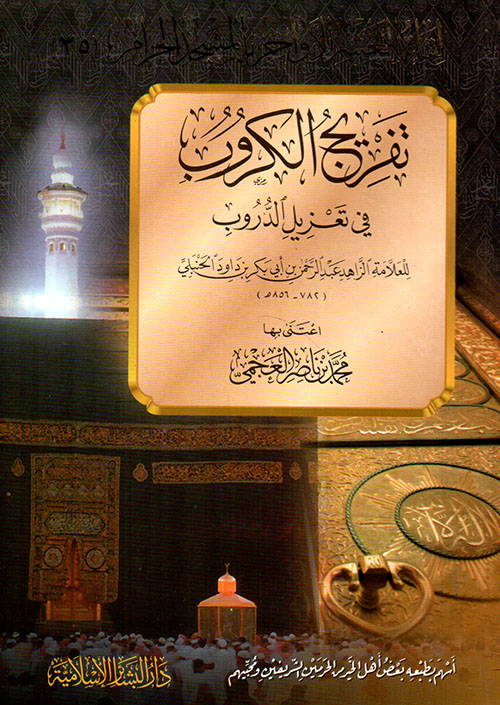 لقاء العشر الأواخر بالمسجد الحرام (٣٥)
تفريج الكروب
في تعزيل الدروب
للعلامة الزاهد عبد الرحمن بن أبي بكر بن داود الحنبلي
(٧٨٢ - ٨٥٦هـ)
اعتنى بها
محمد بن ناصر العجمي
أسهم بطبعه بعض أهل الخير من الحرمين الشريفين ومحبيهم
دار البشائر الإسلامية